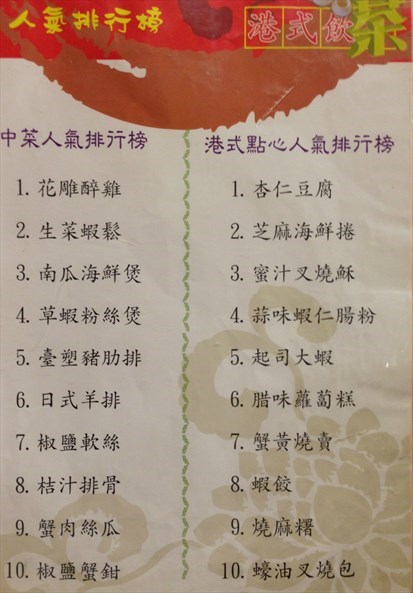 人氣排行榜
港式飲茶
中菜人氣排行榜
1. 花雕醉雞
2. 生菜蝦鬆
3. 南瓜海鮮煲
4. 草蝦粉絲煲
5. 臺塑豬肋排
6. 日式羊排
7. 椒鹽軟絲
8. 桔汁排骨
9. 蟹肉絲瓜
10. 椒鹽蟹鉗
港式點心人氣排行榜
1. 杏仁豆腐
2. 芝麻海鮮捲
3. 蜜汁叉燒酥
4. 蒜味蝦仁腸粉
5. 起司大蝦
6. 腊味蘿蔔糕
7. 蟹黃燒賣
8. 蝦餃
9. 燒麻糬
10. 蠔油叉燒包